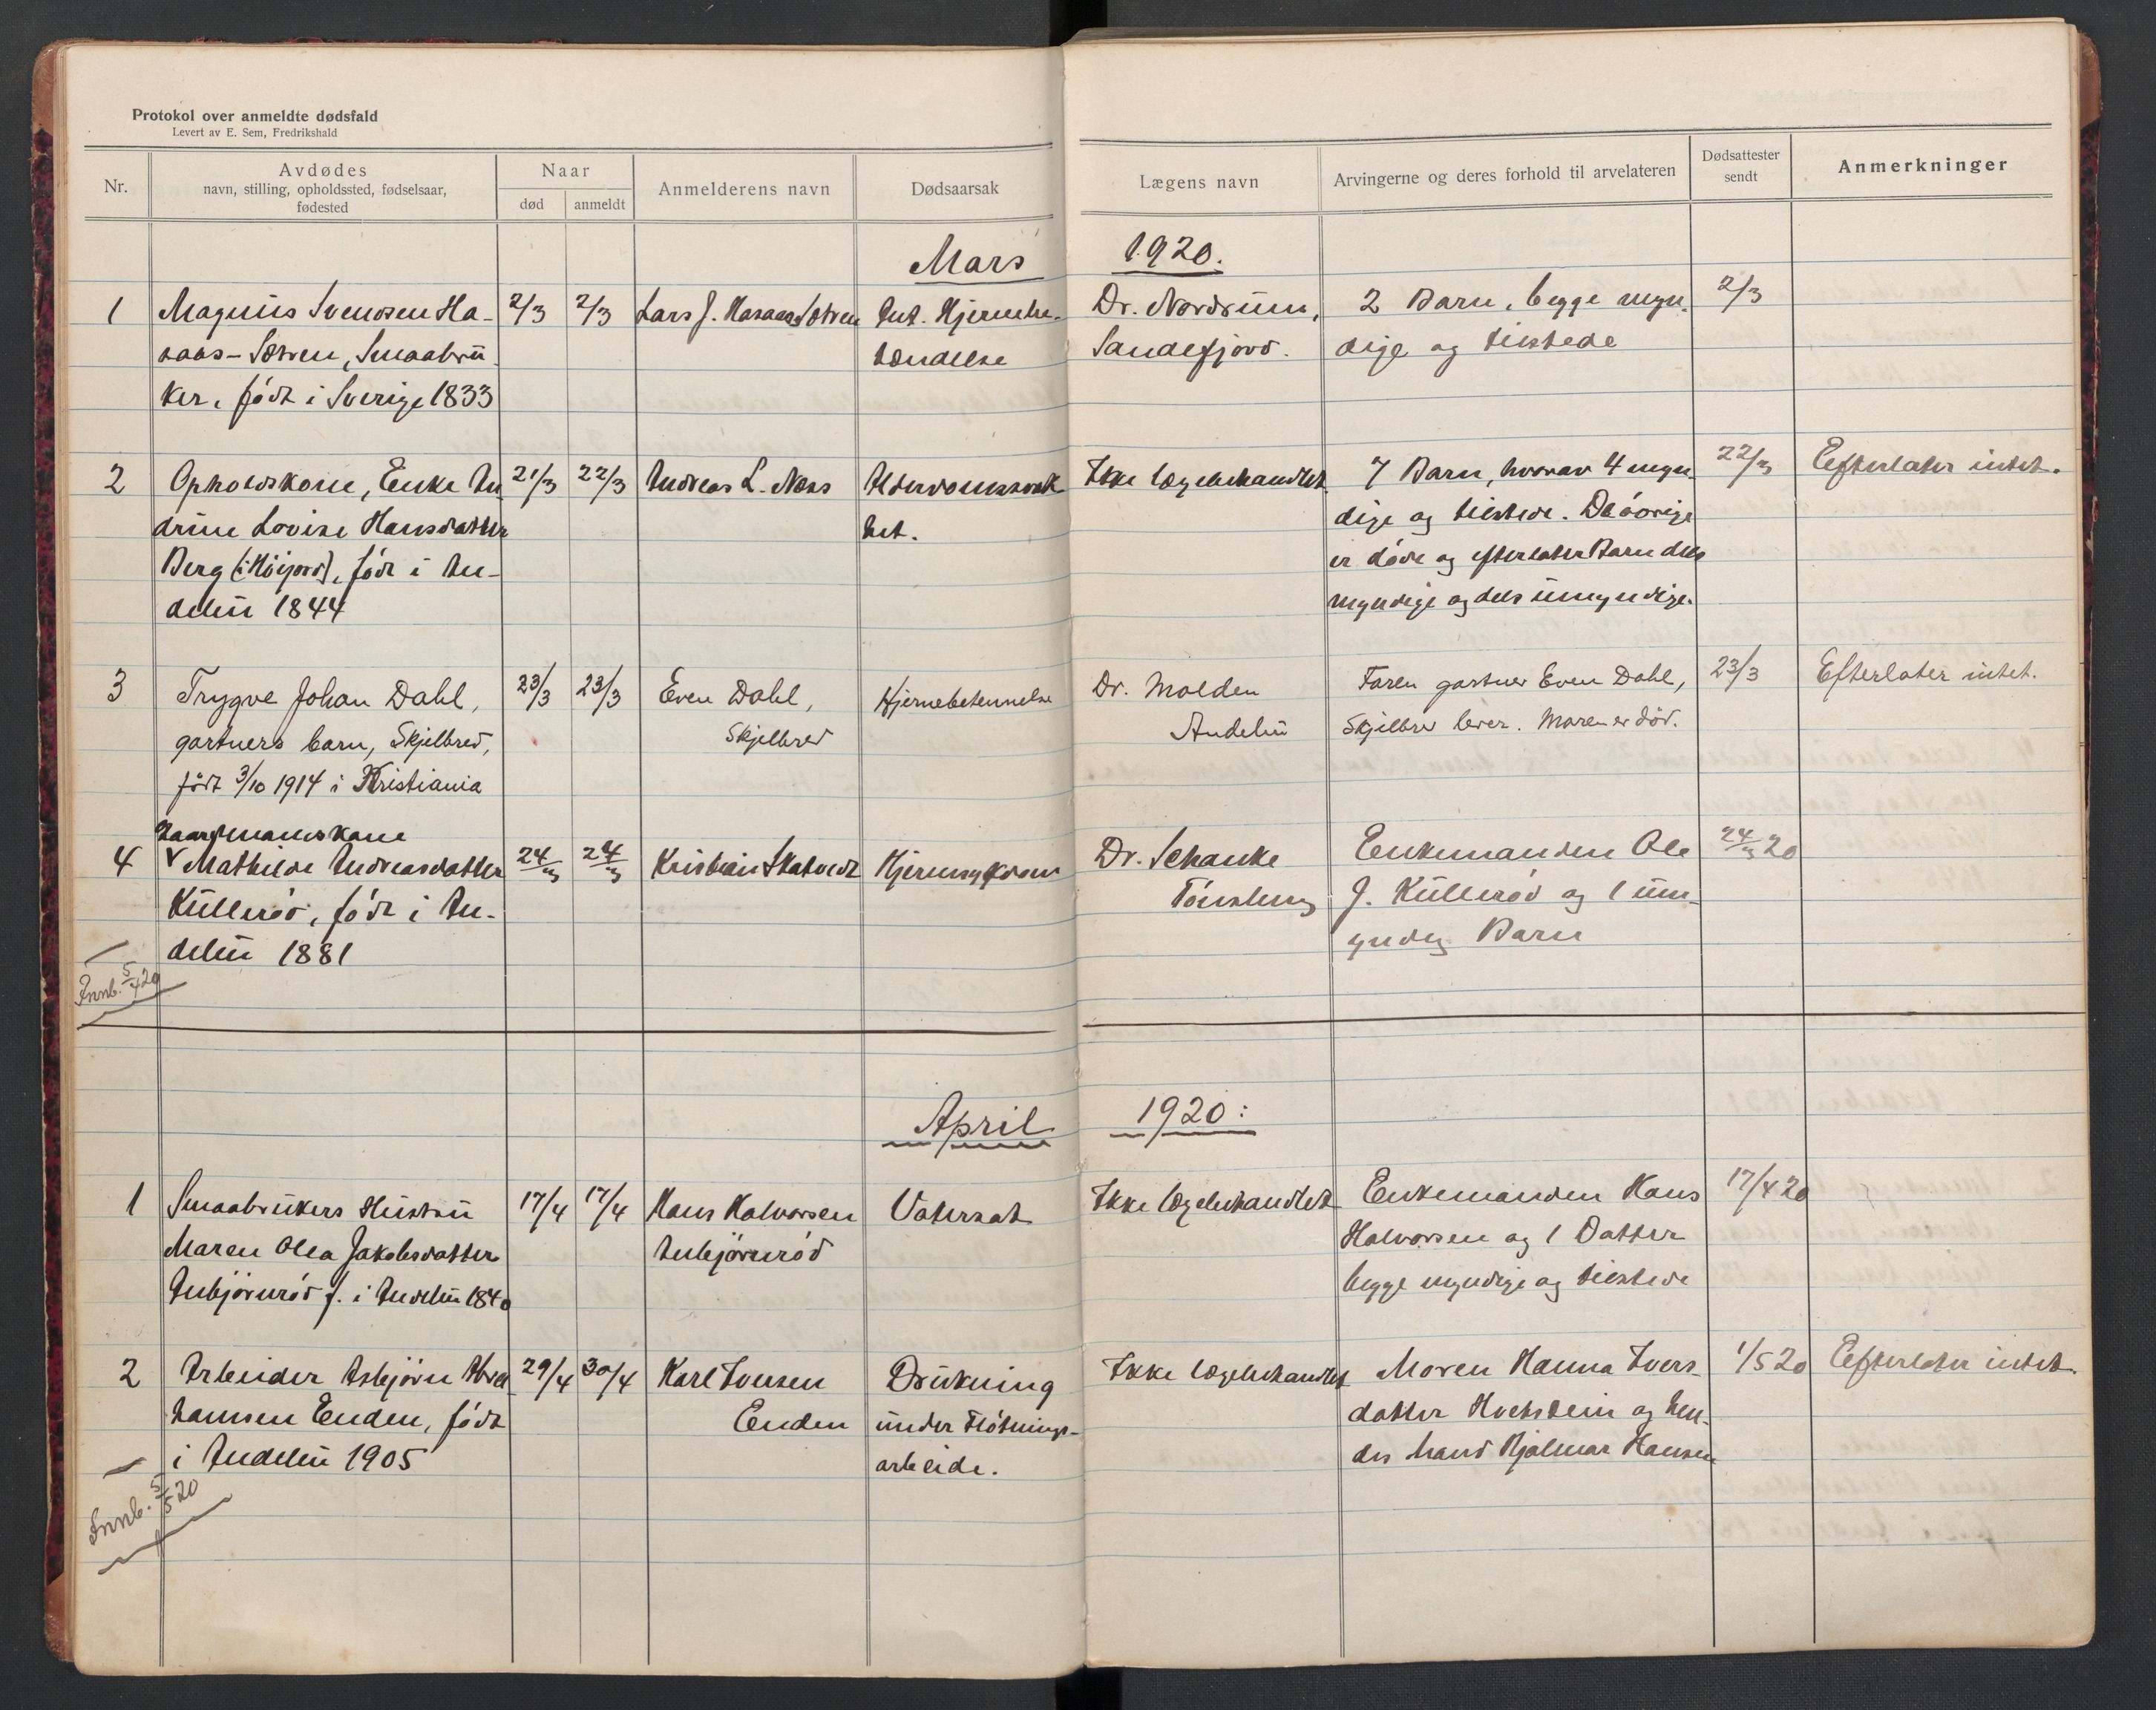 Protokol over anmeldte dødsfald
Levert av E. Sem, Fredrikshald
Nr.
Avdødes
navn, stilling, opholdssted, fødselsaar,
fødested
Naar
død
anmeldt
Anmelderens navn
Dødsaarsak
Lægens navn
Arvingerne og deres forhold til arvelateren
Dødsattester
sendt
Anmerkninger
Mars 1920.
1
Magnus Svendsen Ha-
saas-Sætren, Smaabru-
ker, født i Sverige 1833
2/3
2/3
Lars J. Hasaas Sætren
Ant. Hjernebe-
tændelse
Dr. Nordrum,
Sandefjord.
2 Barn, begge myn-
dige og tilstede
2/3
2
Opholdskone, Enke An-
drine Lovise Hansdatter
Berg (i Höijord), född i An-
debu 1844
21/3
22/3
Andreas L. Næss
Alderdomssvak
het.
Ikke lægebehandlet
7 Barn, hvorav 4 myn-
dige og tilstede. De övrige
er döde og efterlater Barn dels
myndige og dels umyndige.
22/3
Efterlater intet.
3
Trygve Johan Dahl,
gartners barn, Skjelbred,
født 3/10 1914 i Kristiania
23/3
23/3
Even Dahl,
Skjelbred
Hjernebetennelse
Dr. Molden
Andebu
Faren gartner Even Dahl,
Skjelbred lever. Moren er død.
23/3
Efterlater intet.
Gaardmandskone
4
Mathilde Andreasdatter
Kulleröd, født i An-
debu 1881
24/3
24/3
Kristian Skatvedt
Hjernesykdom
Dr. Schanke
Tönsberg
Enkemanden Ole
J. Kulleröd og 1 um-
yndig Barn
24/3 20
Innb. 5/4 20
April 1920:
1
Smaabrukers Hustru
Maren Olea Jakobsdatter
Anbjörnröd f. i Andebu 1840
17/4
17/4
Hans Halvorsen
Anbjörnröd
Vatersot
Ikke lægebehandlet
Enkemanden Hans
Halvorsen og 1 Datter
begge myndige og tilstede
17/4 20
2
Arbeider Asbjörn
Enden, født
i Andebu 1905
29/4
30/4
Karl Iversen
Enden
Drukning
under Flötnings-
arbeide.
Ikke lægebehandlet
Moren Hanna Ivers-
datter Hvitstein og hen-
des mand Hjalmar Hansen
1/5 20
Efterlater intet.
Innb. 5/5 20